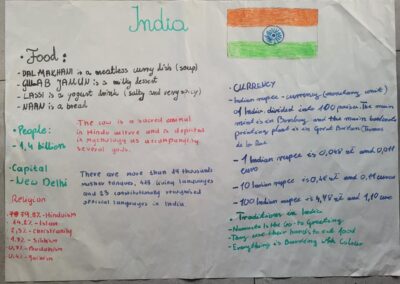 India
• Food:
- DAL MAKHANI is a meatless curry dish (soup)
- GULAB JAMUN is a milky dessert
- LASSI is a yogurt drink (salty and very spicy)
- NAAN is a bread
• People:
- 1,4 billion
The cow is a sacred animal
in Hindu culture and is depicted
in mythology as accompanying
several gods.
• Capital
- New Delhi
There are more than 19 thousand
mother tongues, 429 living languages
and 23 constitutionally recognised
official languages in India.
Religion
79,8% - Hinduism
14,2% - Islam
2,3% - Christianity
1,7% - Sikhism
0,7% - Buddhism
0,4% - Jainism
• CURRENCY
- Indian rupee - currency (monetary unit)
of India divided into 100 paise. The main
mint is in Bombay and the main banknote
printing plant is in Great Britain (Thomas
de la Rue
- 1 Indian rupee is 0,048 zł and 0,011
euro
- 10 Indian rupee is 0,48 zł and 0,11
euro
- 100 Indian rupee is 4,78 zł and 1,10 euro
• Traditions in India
- Namaste Is the Go-to Greeting
- They use their hands to eat food
- Everything is Bursting with Colour